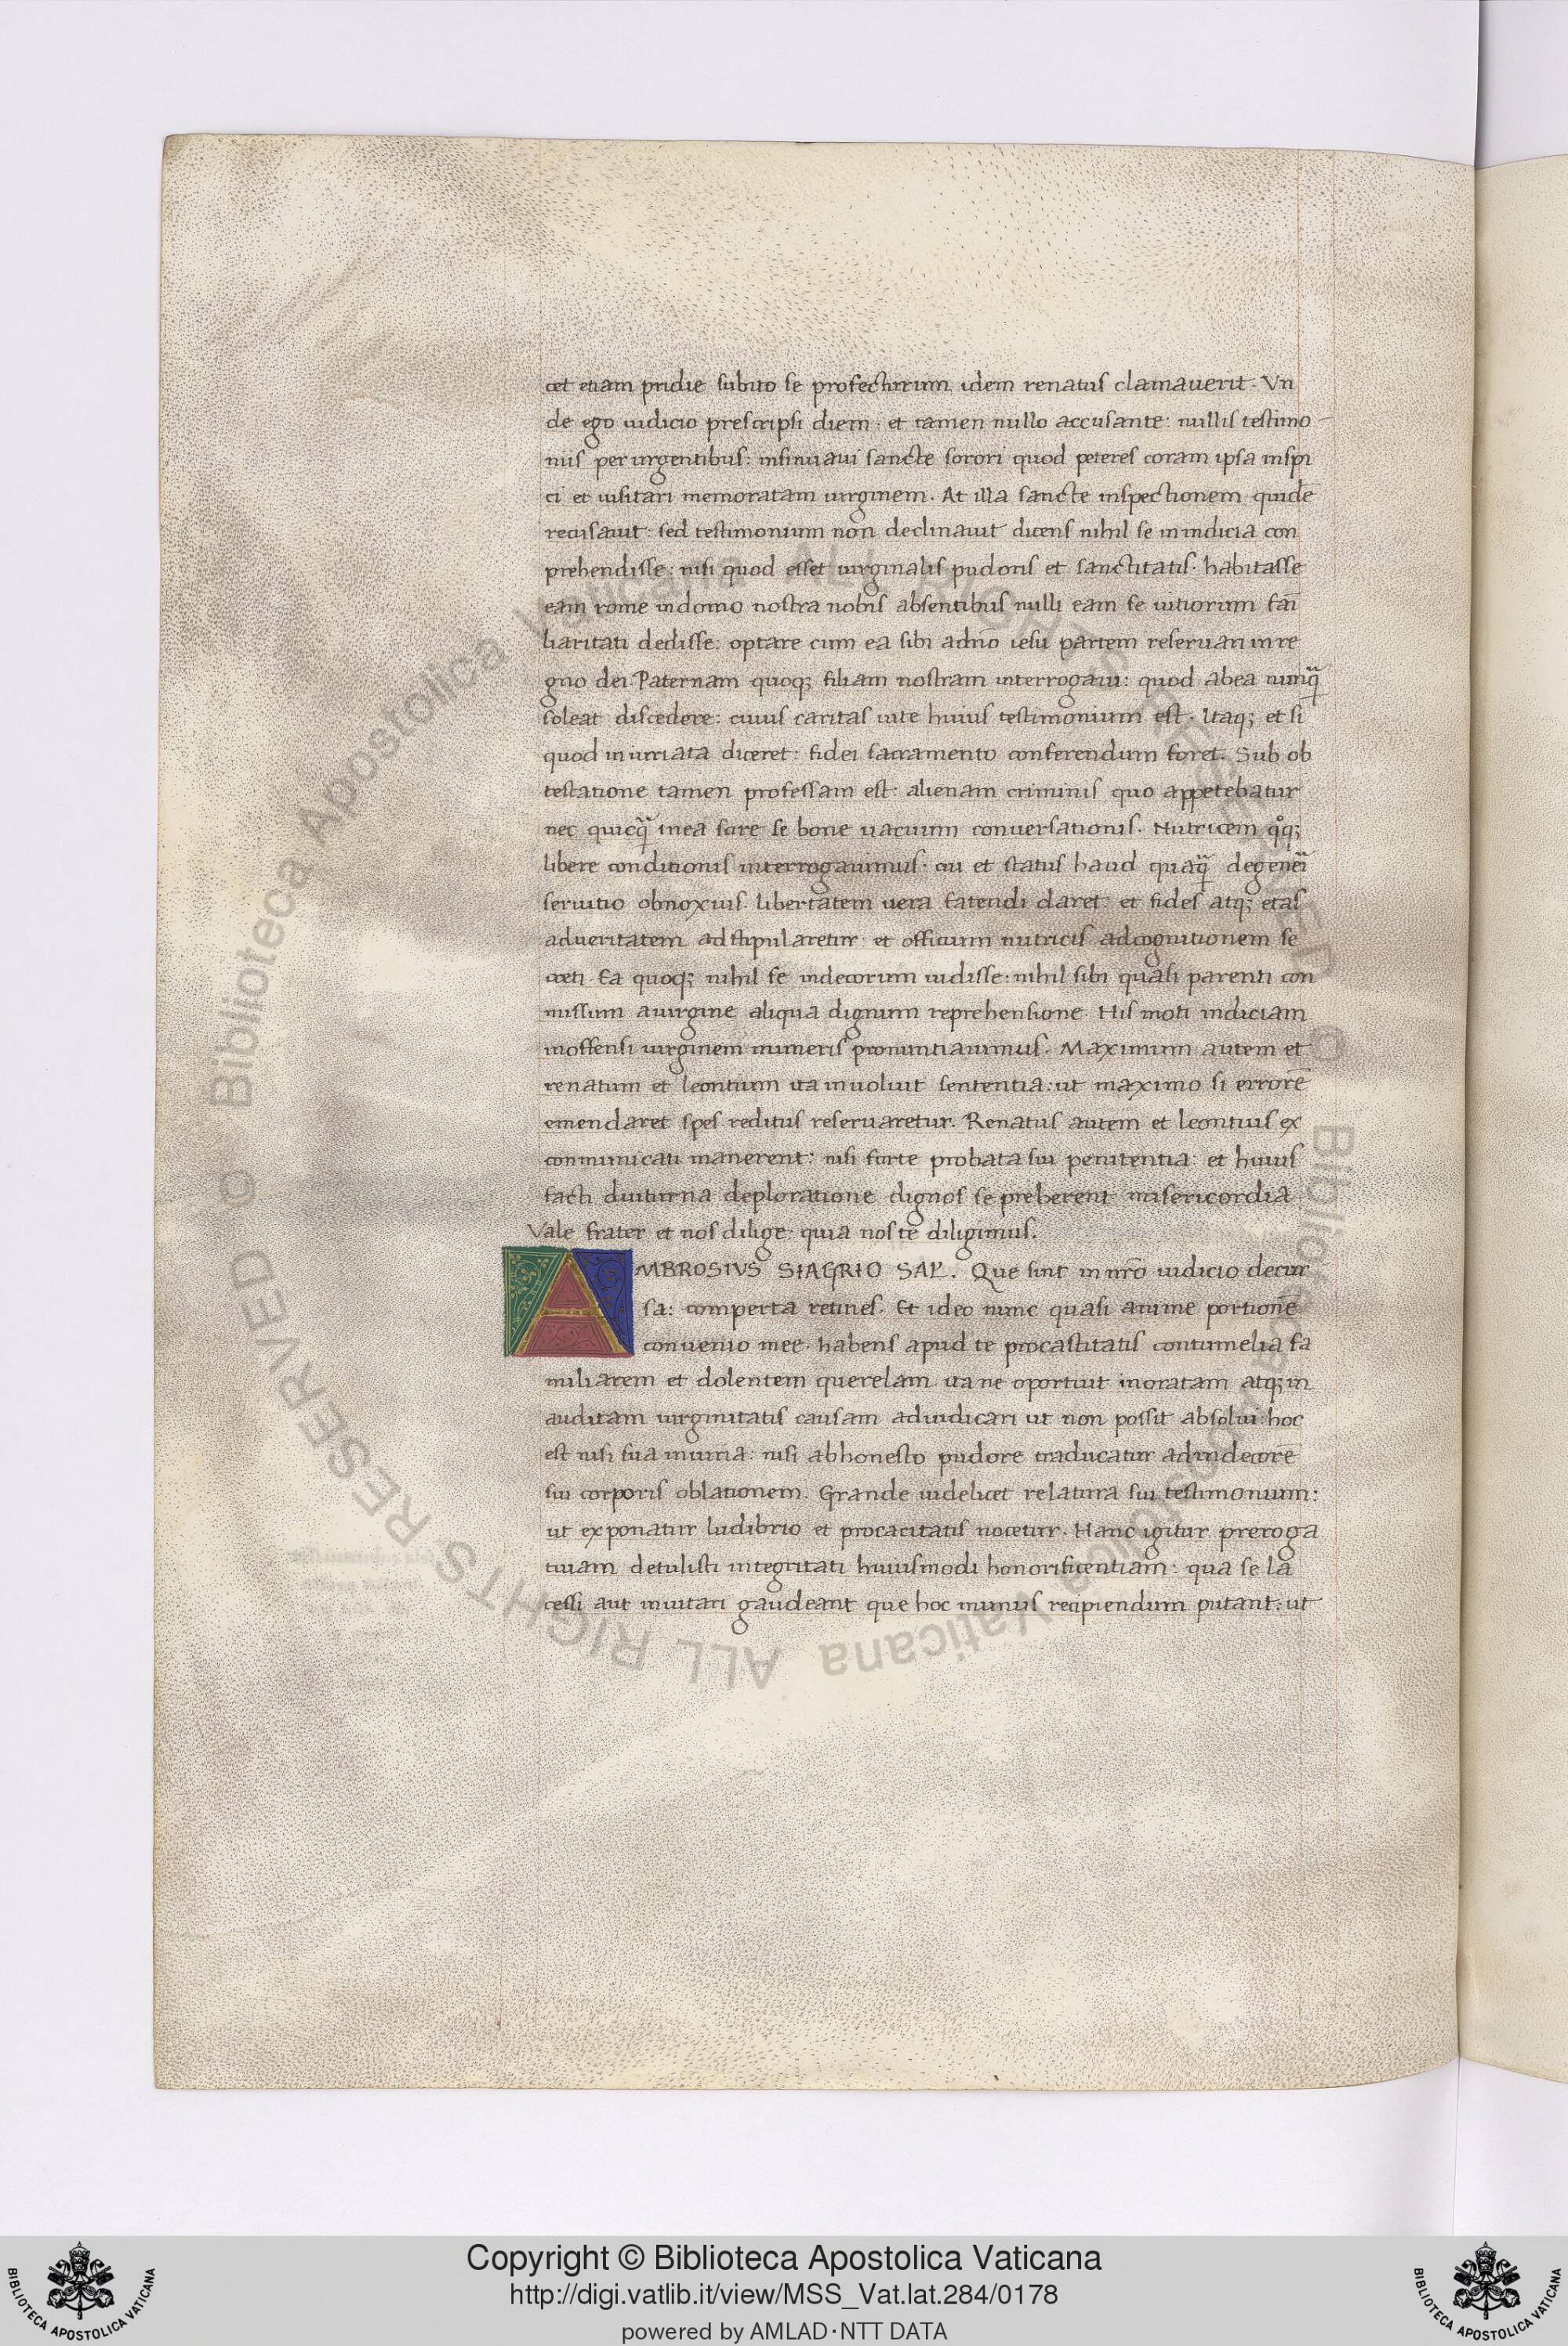 cet etiam pridie subito se profecturum idem renatus clamauerit. Vn
de ego iudicio prescripsi diem. et tamen nullo accusante: nullis testimo-
niis perurgentibus: insinuaui sancte sorori quod peteres coram ipsa inspi
ci et uisitari memoratam uirginem. At illa sancte inspectionem quidē
recusauit: sed testimonium non declinauit dicens nihil se in indicia con
prehendisse: nisi quod esset uirginalis pudoris et sanctitatis. habitasse
eam rome in domo nostra nobis absentibus nulli eam se uitiorum fāi
liaritati dedisse: optare cum ea sibi adn̄o iesu partem reseruari in re
gno dei. Paternam quoq; filiam nostram interrogaui: quod abea nunq̄
soleat discedere: cuius caritas uite huius testimonium est. Itaq; et si
quod iniuriata diceret: fidei sacramento conferendum foret. Sub ob
testatione tamen professam est alienam criminis quo appetebatur
nec quicq̄ inea scire se bone uacuum conuersationis. Nutricem qͦq;
libere conditionis interrogauimus. cui et status haud quaq̄ degeneri
seruitio obnoxius. libertatem uera fatendi daret: et fides atq; etas
adueritatem adstipularetur. et officium nutricis adcognitionem se
creti. Ea quoq; nihil se indecorum uidisse: nihil sibi quasi parenti con
missum auirgine aliqua dignum reprehensione. His moti indiciam
inoffensi uirginem muneris pronuntiauimus. Maximum autem et
renatum et leontium ita inuoluit sententia: ut maximo si errorē
emendaret spes reditus reseruaretur. Renatus autem et leontius ex
communicati manerent: nisi forte probata sui penitentia: et huius
facti diuturna deploratione dignos se preberent misericordia
Vale frater et nos dilige quia nos te diligimus.
AMBROSIVS SIAGRIO SAL. Que sint in nr̄o iudicio decur
sa: comperta retines. Et ideo nunc quasi anime portionē
conuenio mee. habens apud te procastitatis contumelia fa
miliarem et dolentem querelam. ita ne oportuit inoratam atq; in
auditam uirginitatis causam adiudicari ut non possit absolui: hoc
est nisi sua iniuria: nisi abhonesto pudore traducatur adindecorē
sui corporis oblationem. Grande uidelicet relatura sui testimonium:
ut exponatur ludibrio et procacitatis uocetur. Hanc igitur preroga
tiuam detulisti integritati huiusmodi honorificentiam: qua se la
cessi aut inuitari gaudeant que hoc munus recipiendum putant: ut
Biblioteca Apostolica Vaticana ALL RIGHTS RESERVED ©
Biblioteca Apostolica Vaticana ALL RIGHTS RESERVED ©
Copyright © Biblioteca Apostolica Vaticana
http://digi.vatlib.it/view/MSS_Vat.lat.284/0178
powered by AMLAD·NTT DATA
BIBLIOTECA APOSTOLICA VATICANA
BIBLIOTECA APOSTOLICA VATICANA